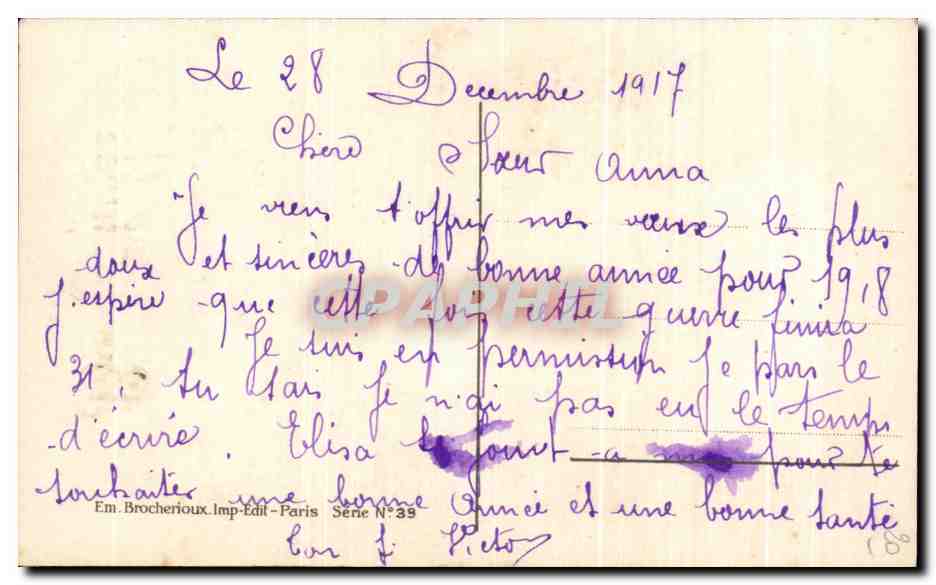 Le 28 Decembre 1917
Chère Sœur Anna
Je viens t'offrir mes vœux les plus
doux et sincères de bonne année pour 1918
J'espère que cette fois cette guerre finira
Je suis en permission Je pars le
31, tu sais Je n'ai pas eu le temps
d'écrire. Elisa joint a pour te
souhaiter une bonne Année et une bonne santé
Em. Brocherioux. Imp-Edit-Paris Série N° 39
Ton f. Victor
CPAPHIL